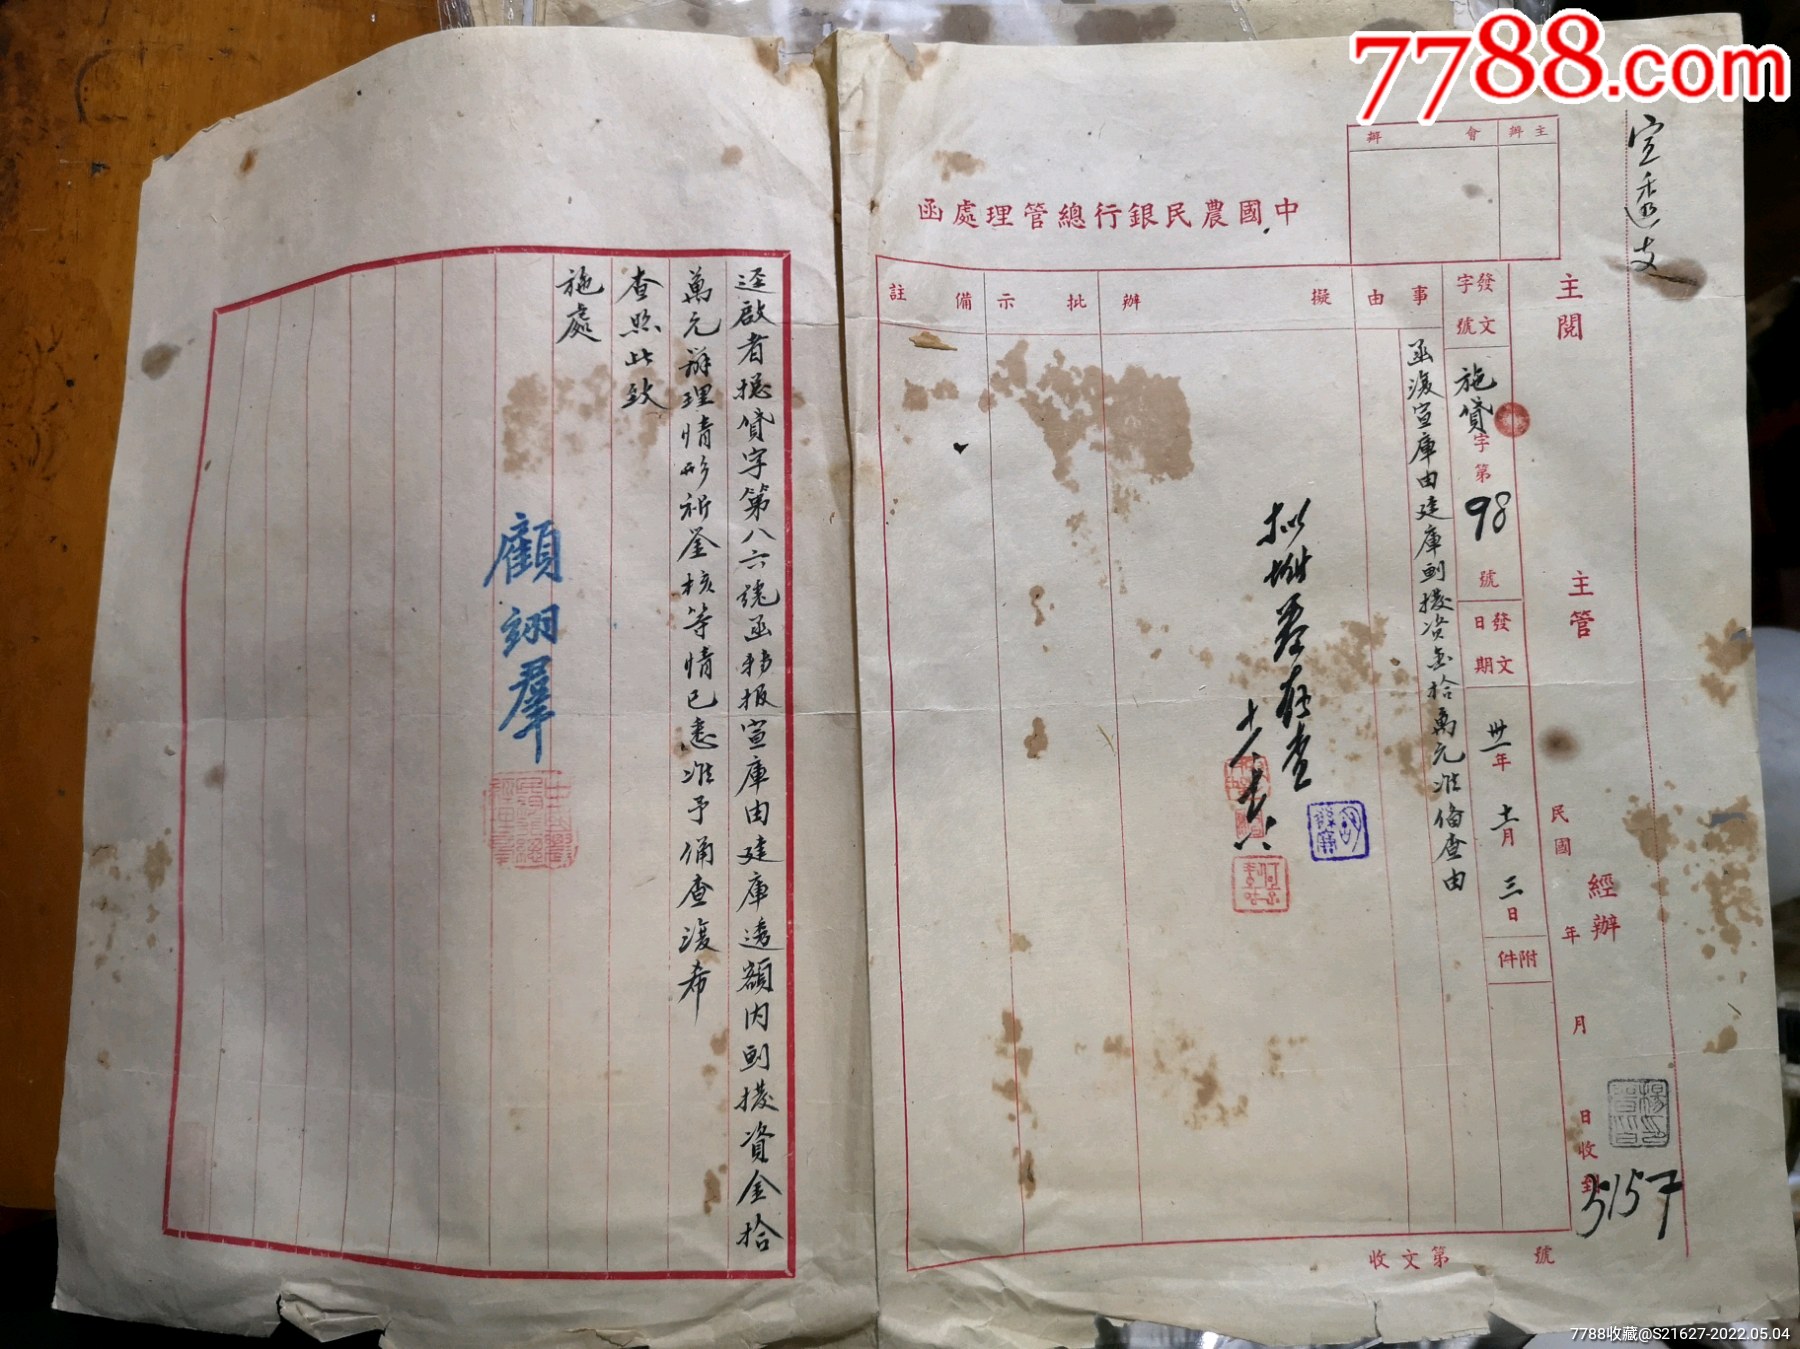 7788.com
宣透支
主辦
會辦
中國農民銀行總管理處函
主閱
主管
經辦
民國 年 月 日收到
5157
發文字號
施貸字第98號
發文日期
卅一年十一月三日
附件
事由
函復宣庫由建庫劃撥資金拾萬元准俻查由
擬辦
批示
備註
收文第 號
迳啟者據貸字第八六號函轉报宣庫由建庫透額内劃撥資金拾
萬元辦理情形祈鉴核等情已悉准予俻查復希
查照此致
施處
顧翊羣
7788收藏@S21627-2022.05.04